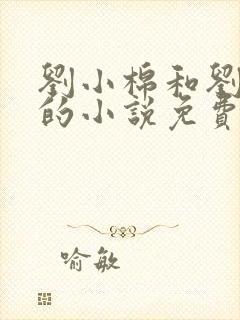 劉小棉和劉
的小說免費
喻敏